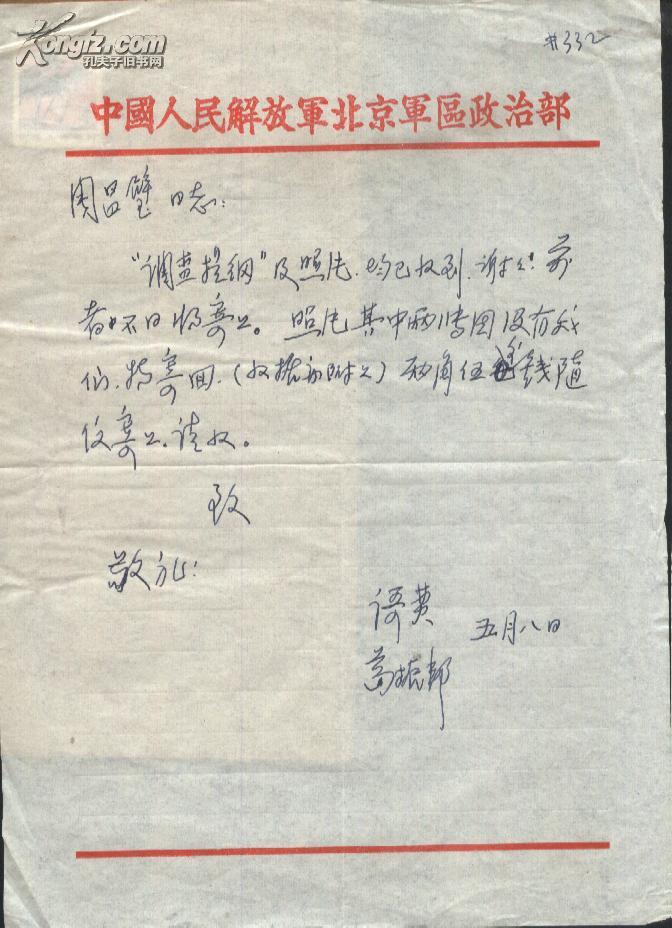 Kongfz.com
孔夫子旧书网
#332
中國人民解放軍北京軍區政治部
周昌璧同志：
“调查提纲”及照片，均已收到，谢谢！前
者不日將寄上。照片其中两张因没有我
们，特寄回，（收据亦附上）两角伍 钱随
仅寄上，请收。
致
敬礼！
五月八日
葛振邦